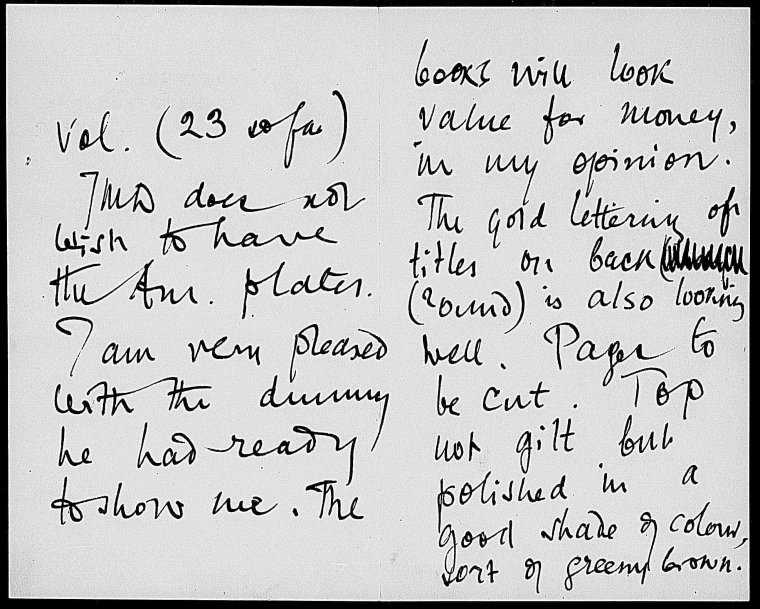 Vol. (23 so far)
JMD does not
wish to have
the Am. plates.
I am very pleased
with the dummy
he had ready
to show me. The
books will look
value for money,
in my opinion.
The gold lettering of
titles on back
(round) is also looking
well. Pages to
be cut. Top
not gilt but
polished in a
good shade of colour,
sort of greeny brown.